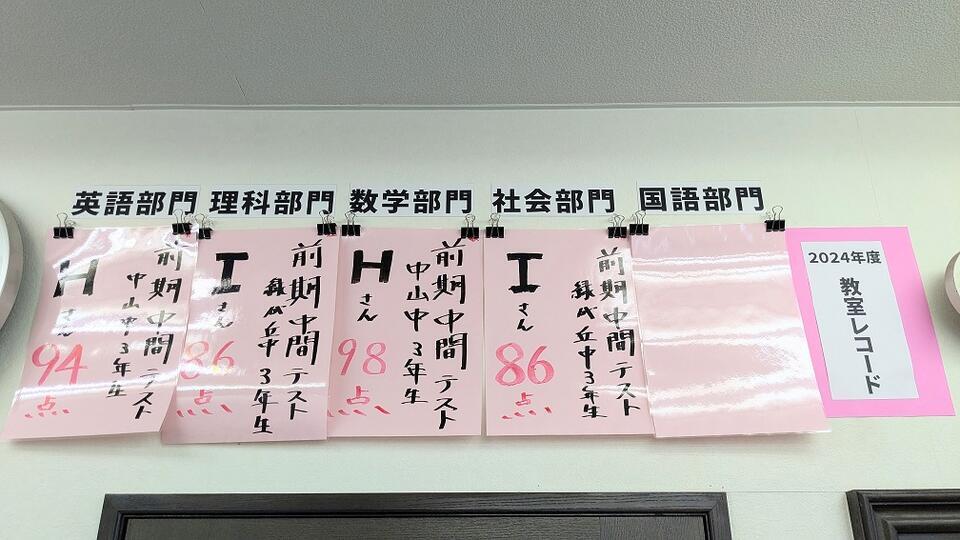 英語部門
理科部門
数学部門
社会部門
国語部門
前期中間テスト
中山中3年生
Hさん
94点
前期中間テスト
緑が丘中3年生
Iさん
86点
前期中間テスト
中山中3年生
Hさん
98点
前期中間テスト
緑が丘中3年生
Iさん
86点
2024年度
教室レコード